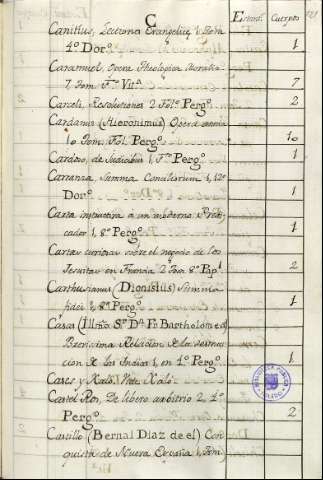 C
Estant. Cuerpos
Canillus, Lectiones Evangelicæ 1. Tom.
4º Dorº. 1
Caramuel, Opera Theologica Moralia
7. Tom. Fº. Vitª. 7
Carceli, Resolutiones 2 Folº Pergº. 2
Cardanus (Hieronimus) Opera omnia
10 Tom. Folº. Pergº. 10
Cardoso, de Judiciis 1, Fº. Pergº. 1
Carranza Summa Conciliorum 1, 12º
Dorº. 1
Carta instructiva a un moderno Predi-
cador 1, 8º Pergº. 1
Cartas curiosas sobre el negocio de los
Jesuitas en Francia 2 Tom 8º Papˡ. 2
Carthusianus (Dionisius) Summa
fidei 1, 8º Pergº. 1
Casas (Illmo Sr. Dn. Fr. Bartholome de)
Brevisima Relacion de la destruc-
cion de las Indias 1, en 4º Pergº. 1
Cases y Xaló. Vide Xaló.
Castel Ros, De libero arbitrio 2, 4º
Pergº. 2
Castillo (Bernal Diaz de el) Con
quista de Nueva España 1, Tom)
BIBLIOTECA PUBLICA
TOLEDO